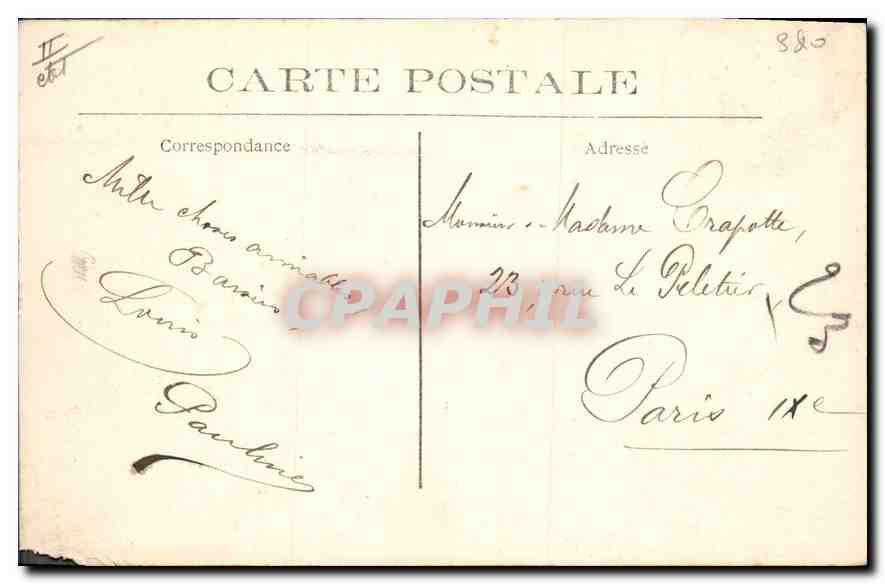 II
état
380
CARTE POSTALE
Correspondance
Adresse
Mille choses aimables
Baisers
Louis
Pauline
Monsieur Madame Crapotte,
23, rue Le Peletier
Paris IXe
CPAPHIL